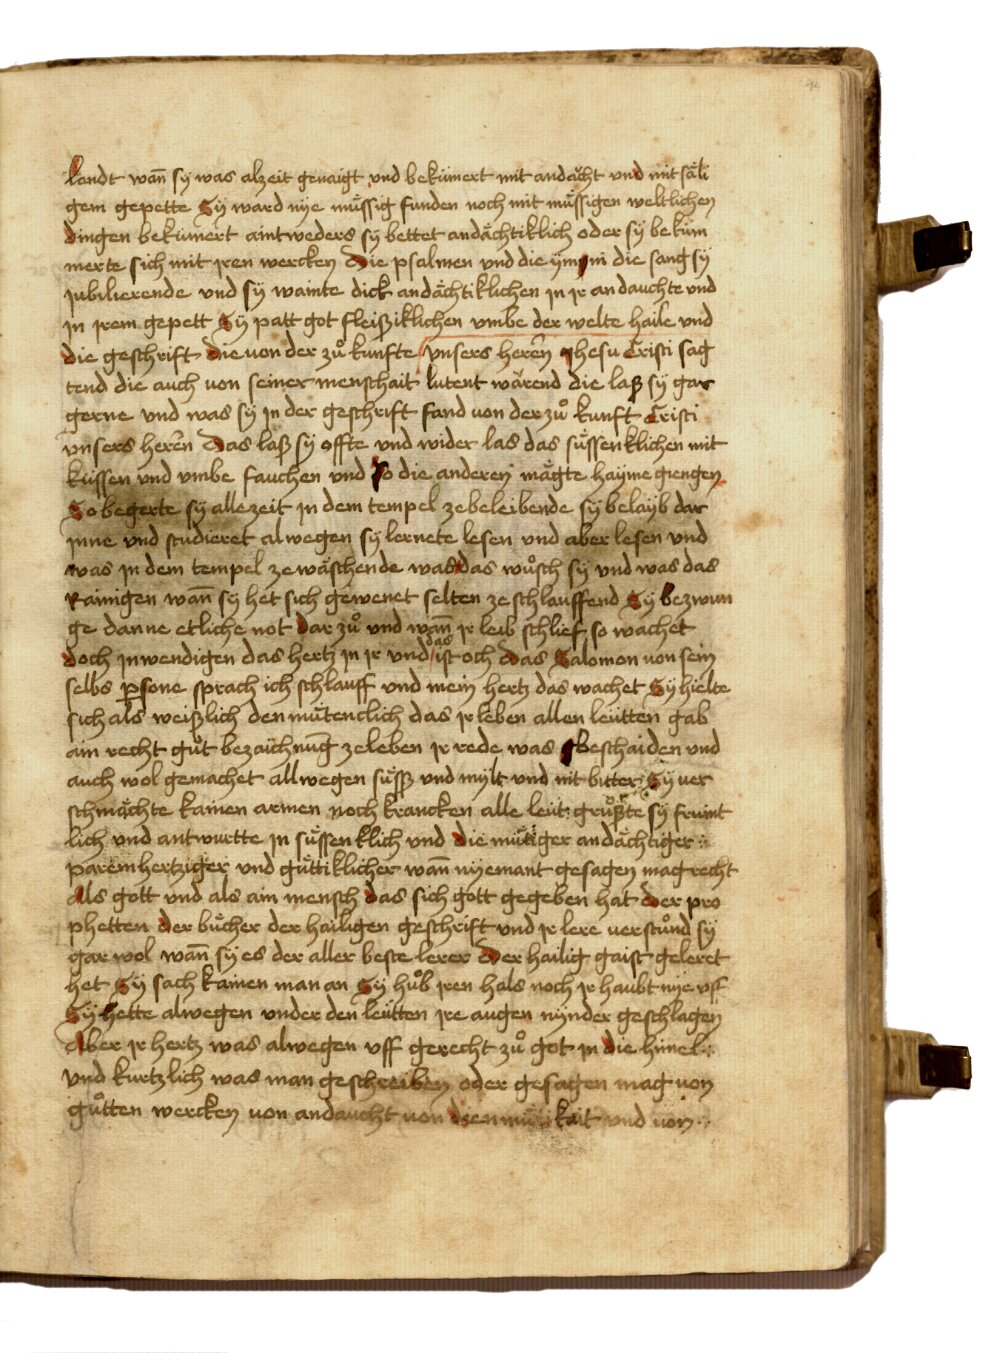 landt wan̄ sy was alzeit genaigt vnd bekümert mit andächt vnd mit säli
gem gepette Sy ward nye müssig funden noch mit müssigen weltlichen
dingen bekümert aintweders sy bettet andächtiklich oder sy beküm
merte sich mit jren wercken Die psalmen vnd die ympni die sang sy
jubilierende vnd sy wainte dick andächtiklichen in jr andauchte vnd
in jrem gepett Sy patt got fleißiklichen vmbe der welte haile vnd
die geschrift die von der zů kunfte vnsers herēn jhesu Cristi sag
tend die auch von seiner menschait lutent wärend die laß sy gar
gerne vnd was sy in der geschrift fand von der zů kunft Cristi
vnsers herēn Das laß sy offte vnd wider las das süssenklichen mit
küssen vnd vmbe fauchen vnd so die anderen mägte hayme giengen
So begerte sy alle zeit in dem tempel ze beleibende sy belayb dar
jnne vnd studieret alwegen sy lernete lesen vnd aber lesen vnd
was in dem tempel ze wäschende was das wůsch sy vnd was das
Rainigen wan̄ sy het sich gewenet selten ze schlauffend Sy bezwun
ge danne etliche not dar zů vnd wan̄ jr leib schlief so wachet
doch jnwendigen das hertz in jr vnd das ist och das Salomon von sein
selbs psone sprach ich schlauff vnd mein hertz das wachet Sy hielte
sich als weißlich denmütenclich das jr leben allen leütten gab
ain recht gůt bezaichnūg ze leben jr rede was Beschaiden vnd
auch wol gemachet allwegen süsß vnd mylt vnd nit bitter Sy ver
schmächte kainen armen noch krancken alle leut grůßte sy fruint
lich vnd antwurtte in süssenklich vnd die mütiger andächtiger
paremhertziger vnd güttiklicher wan̄ nyemant gesagen mag recht
Als gott vnd als ain mensch das sich gott gegeben hat der pro
phetten der bücher der hailigen geschrift vnd jr lere verstůnd sy
gar wol wan̄ sy es der aller beste lerer Der hailig gaist geleret
het Sy sach kainen man an Sy hůb jren hals noch jr haubt nye vff
Sy hette alwegen vnder den leütten jre augen nynder geschlagen
Aber jr hertz was alwegen vff gerecht zů got in die himel
vnd kurtzlich was man geschreiben oder gesagen mag von
gůtten wercken von andaucht von diemütikait vnd von